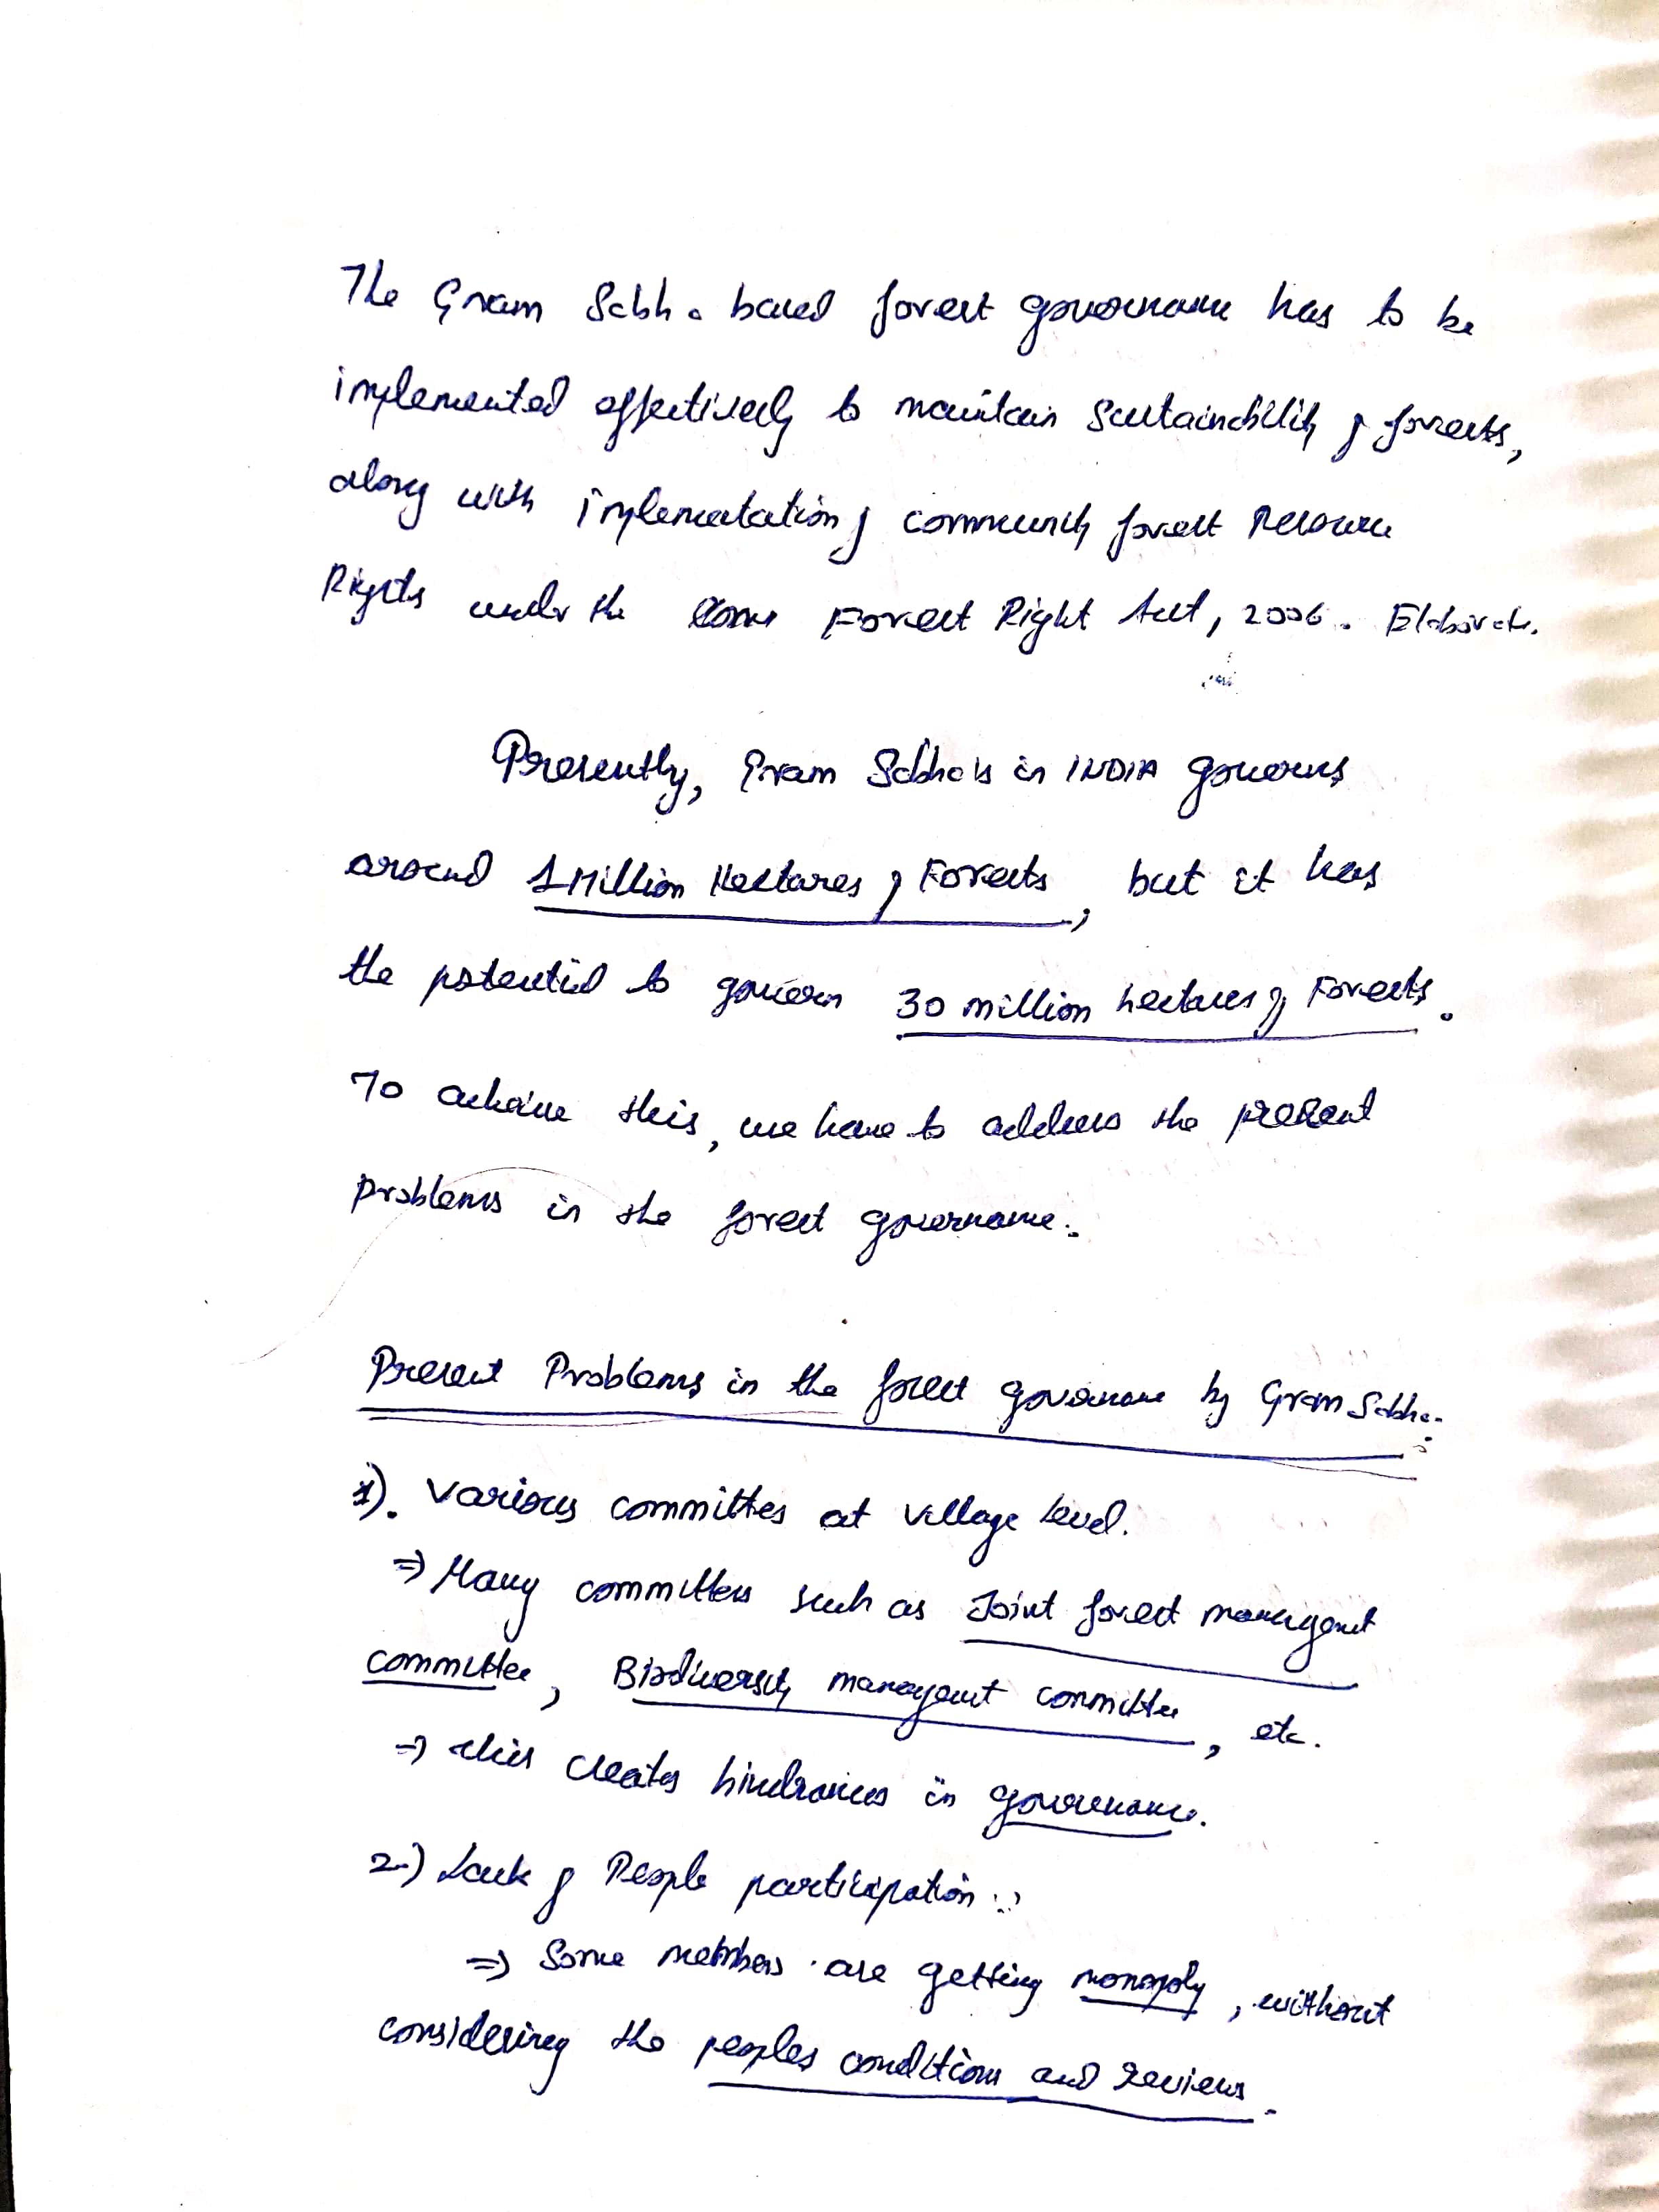 The Gram Sabha based forest governance has to be
implemented effectively to maintain Sustainability of forests,
along with implementation of community forest Resource
Rights under the Forest Right Act, 2006. Elaborate.
Presently, Gram Sabha's in INDIA governs
around 1 Million Hectares of Forests, but it has
the potential to govern 30 million hectares of Forests.
To achieve this, we have to address the present
problems in the forest governance.
Present Problems in the forest governance by Gram Sabha:
1). Various committes at village level.
⇒ Many committees such as Joint forest managemt
committee, Biodiversity managemt committee, etc.
⇒ this creates hindrances in governance.
2.) Lack of People participation :
⇒ Some members are getting monopoly, without
considering the peoples conditions and reviews.